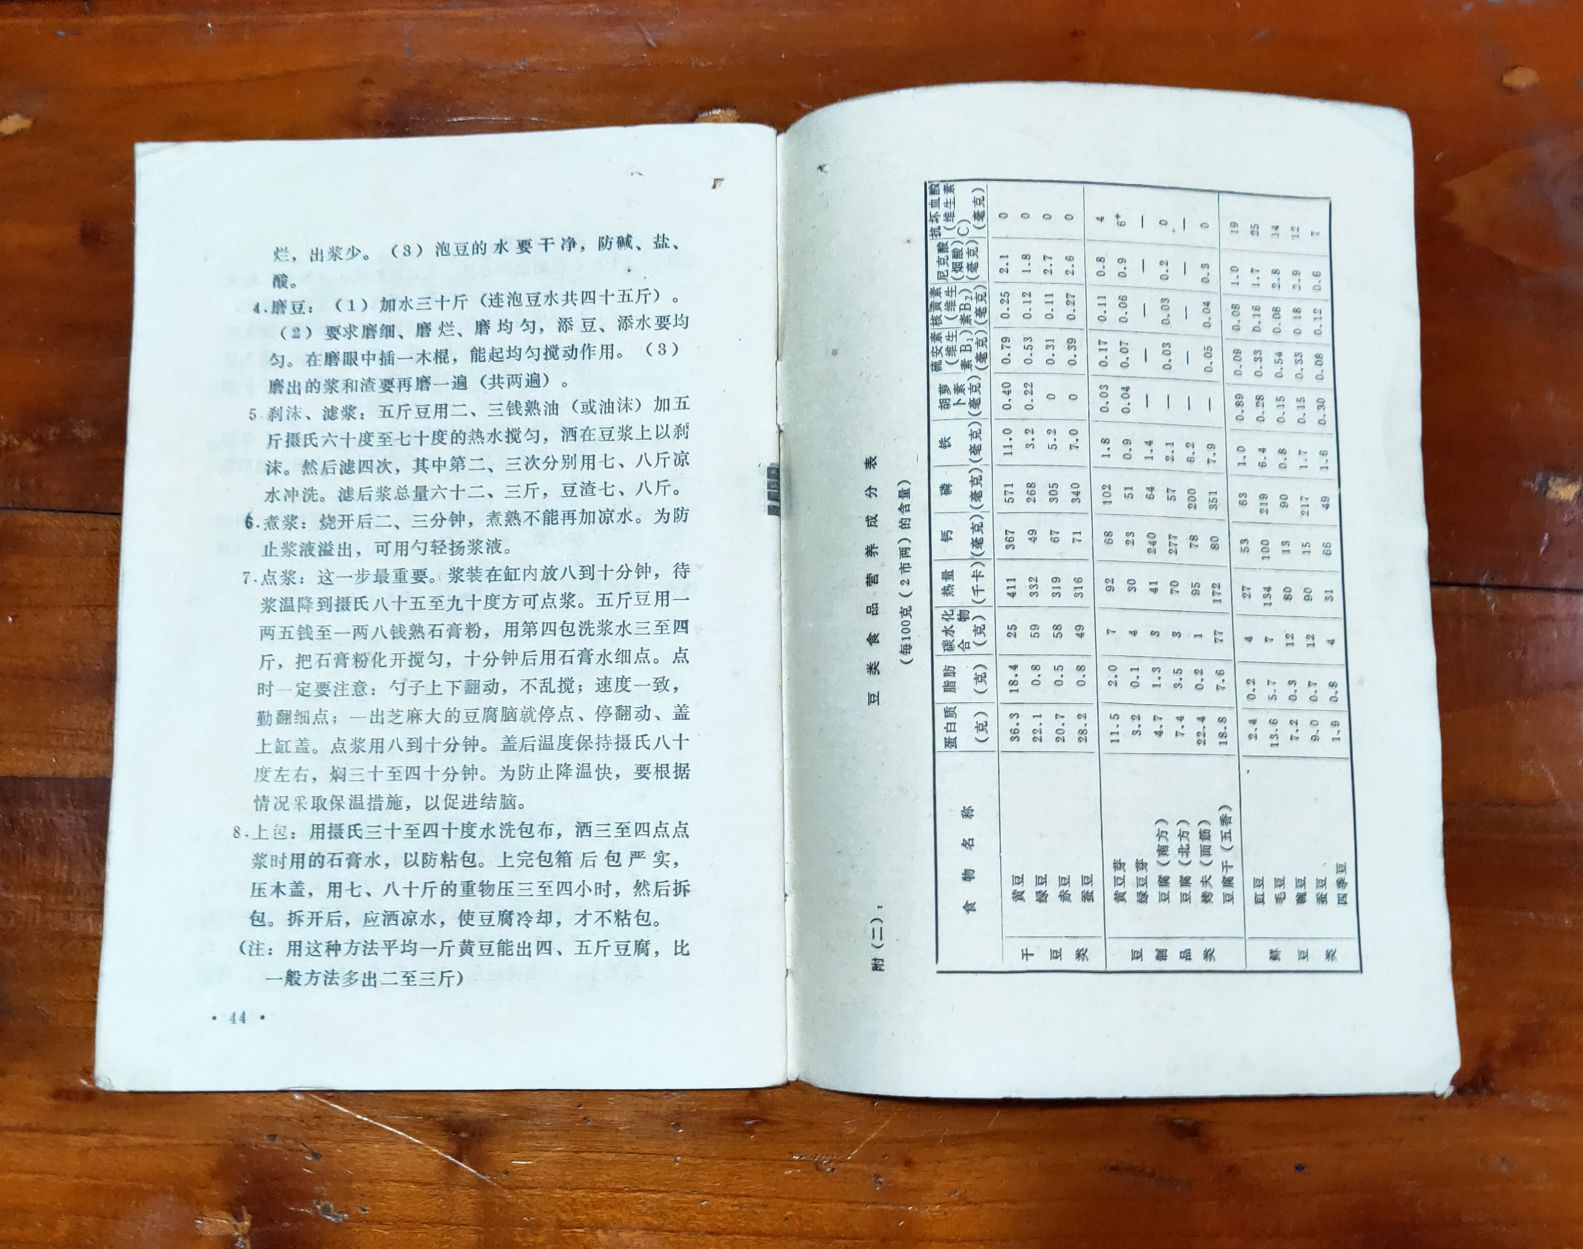 烂，出浆少。（3）泡豆的水要干净，防碱、盐、
酸。
4.磨豆：（1）加水三十斤（连泡豆水共四十五斤）。
（2）要求磨细、磨烂、磨均匀，添豆、添水要均
匀。在磨眼中插一木棍，能起均匀搅动作用。（3）
磨出的浆和渣要再磨一遍（共两遍）。
5.刹沫、滤浆：五斤豆用二、三钱熟油（或油沫）加五
斤摄氏六十度至七十度的热水搅匀，洒在豆浆上以刹
沫。然后滤四次，其中第二、三次分别用七、八斤凉
水冲洗。滤后浆总量六十二、三斤，豆渣七、八斤。
6.煮浆：烧开后二、三分钟，煮熟不能再加凉水。为防
止浆液溢出，可用勺轻扬浆液。
7.点浆：这一步最重要。浆装在缸内放八到十分钟，待
浆温降到摄氏八十五至九十度方可点浆。五斤豆用一
两五钱至一两八钱熟石膏粉，用第四包洗浆水三至四
斤，把石膏粉化开搅匀，十分钟后用石膏水细点。点
时一定要注意：勺子上下翻动，不乱搅；速度一致，
勤翻细点；一出芝麻大的豆腐脑就停点、停翻动、盖
上缸盖。点浆用八到十分钟。盖后温度保持摄氏八十
度左右，焖三十至四十分钟。为防止降温快，要根据
情况采取保温措施，以促进结脑。
8.上包：用摄氏三十至四十度水洗包布，洒三至四点点
浆时用的石膏水，以防粘包。上完包箱后包严实，
压木盖，用七、八十斤的重物压三至四小时，然后拆
包。拆开后，应洒凉水，使豆腐冷却，才不粘包。
（注：用这种方法平均一斤黄豆能出四、五斤豆腐，比
一般方法多出二至三斤）
· 44 ·
附（二）： 豆类食品营养成分表
（每100克（2市两）的含量）
食物名称 蛋白质（克） 脂肪（克） 碳水化合物（克） 热量（千卡） 钙（毫克） 磷（毫克） 铁（毫克） 胡萝卜素（毫克） 硫安素（维生素B₁）（毫克） 核黄素（维生素B₂）（毫克） 尼克酸（烟酸）（毫克） 抗坏血酸（维生素C）（毫克）
干豆类
黄豆 36.3 18.4 25 411 367 571 11.0 0.40 0.79 0.25 2.1 0
绿豆 22.1 0.8 59 332 49 268 3.2 0.22 0.53 0.12 1.8 0
赤豆 20.7 0.5 58 319 67 305 5.2 0 0.31 0.11 2.7 0
蚕豆 28.2 0.8 49 316 71 340 7.0 0 0.39 0.27 2.6 0
豆制品类
黄豆芽 11.5 2.0 7 92 68 102 1.8 0.03 0.17 0.11 0.8 4
绿豆芽 3.2 0.1 4 30 23 51 0.9 0.04 0.07 0.06 0.9 6⁺
豆腐（南方） 4.7 1.3 3 41 240 64 1.4 — — — — —
豆腐（北方） 7.4 3.5 3 70 277 57 2.1 — 0.03 0.03 0.2 0
烤夫（面筋） 22.4 0.2 1 95 78 200 6.2 — — — — —
豆腐干（五香） 18.8 7.6 77 172 80 351 7.9 — 0.05 0.04 0.3 0
鲜豆类
豇豆 2.4 0.2 4 27 53 63 1.0 0.89 0.09 0.08 1.0 19
毛豆 13.6 5.7 7 134 100 219 6.4 0.28 0.33 0.16 1.7 25
豌豆 7.2 0.3 12 80 13 90 0.8 0.15 0.54 0.08 2.8 14
蚕豆 9.0 0.7 12 90 15 217 1.7 0.15 0.33 0.18 2.9 12
四季豆 1.9 0.8 4 31 66 49 1.6 0.30 0.08 0.12 0.6 7